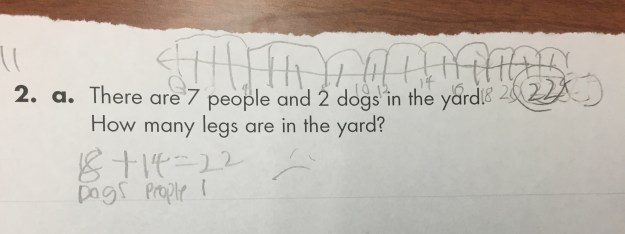 10 12 14 16 18 20 22
2. a. There are 7 people and 2 dogs in the yard.
How many legs are in the yard?
8 +14=22
Dogs People